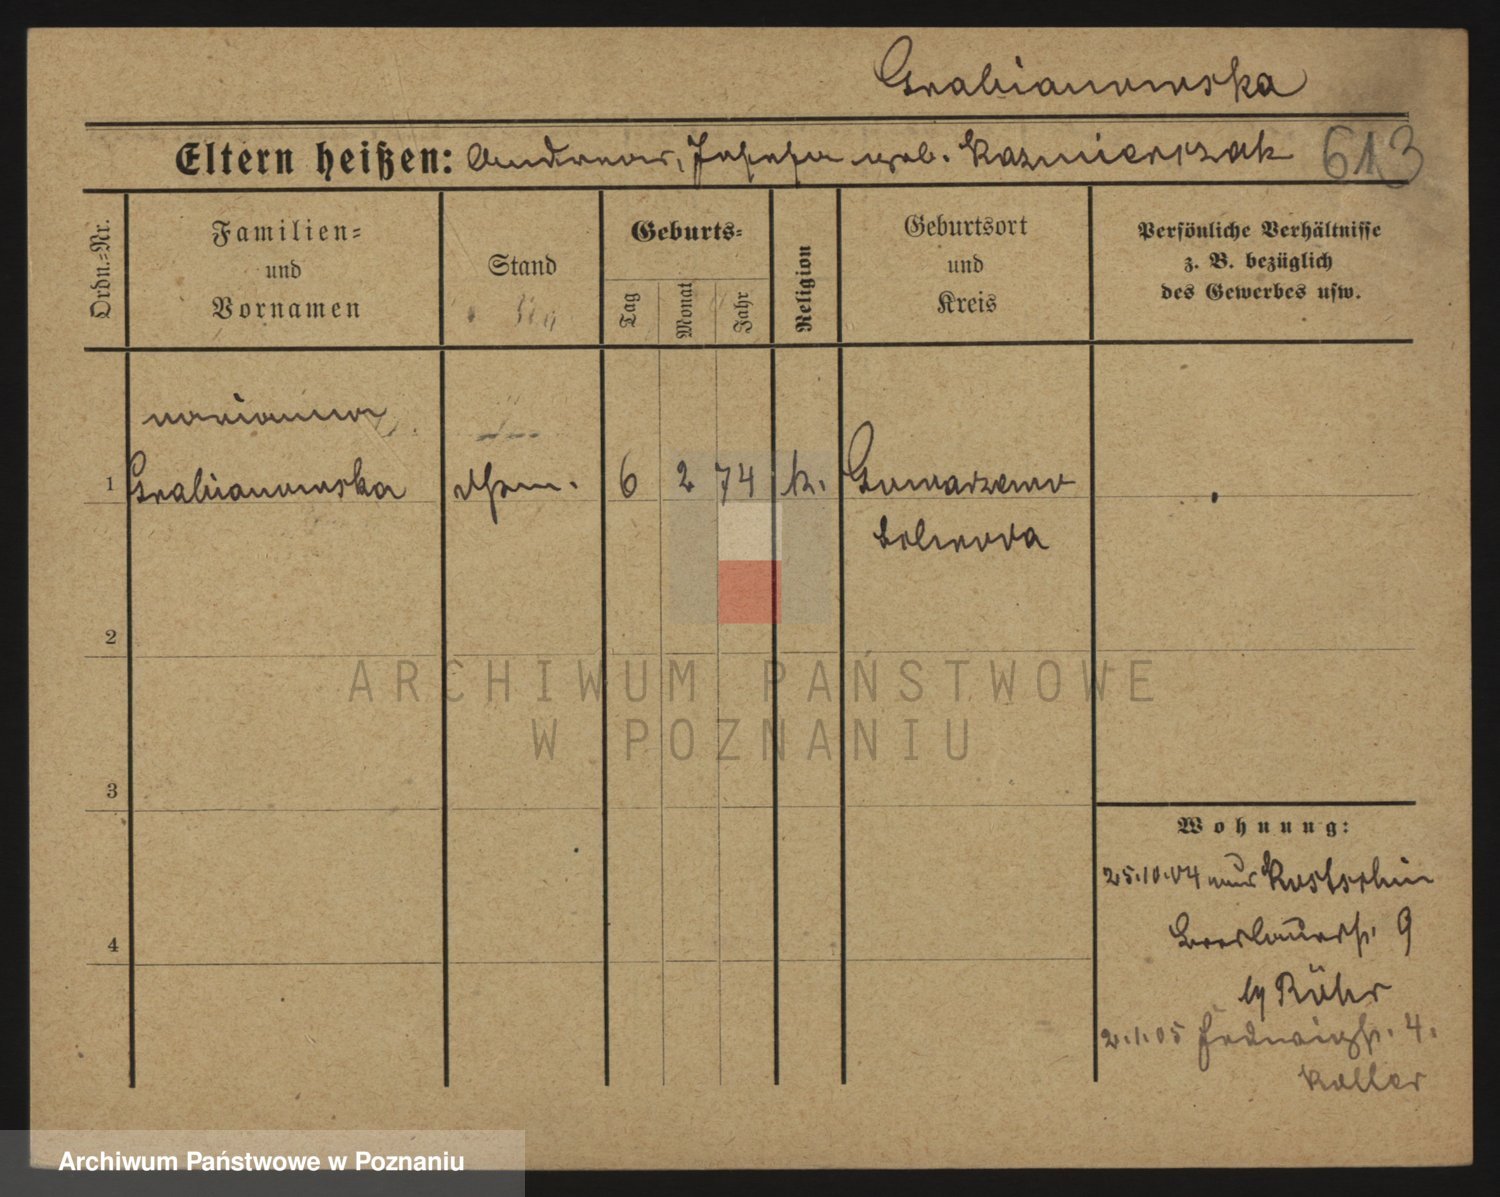 Grabianowska
Eltern heißen: Andreas, Josefa geb. Kazmierczak 613
Ordn.-Nr.
Familien-
und
Vornamen
Stand
Geburts-
Tag
Monat
Jahr
Religion
Geburtsort
und
Kreis
Persönliche Verhältnisse
z. B. bezüglich
des Gewerbes usw.
Marianna
1 Grabianowska 6 2 74 k. Gwarzewo
Schroda
2
ARCHIWUM PAŃSTWOWE
W POZNANIU
3
Wohnung:
25.10.04 aus Kostschin
Breslauerstr. 9
4
by Röhr
2.1.05 Hedwigstr. 4.
Keller
Archiwum Państwowe w Poznaniu